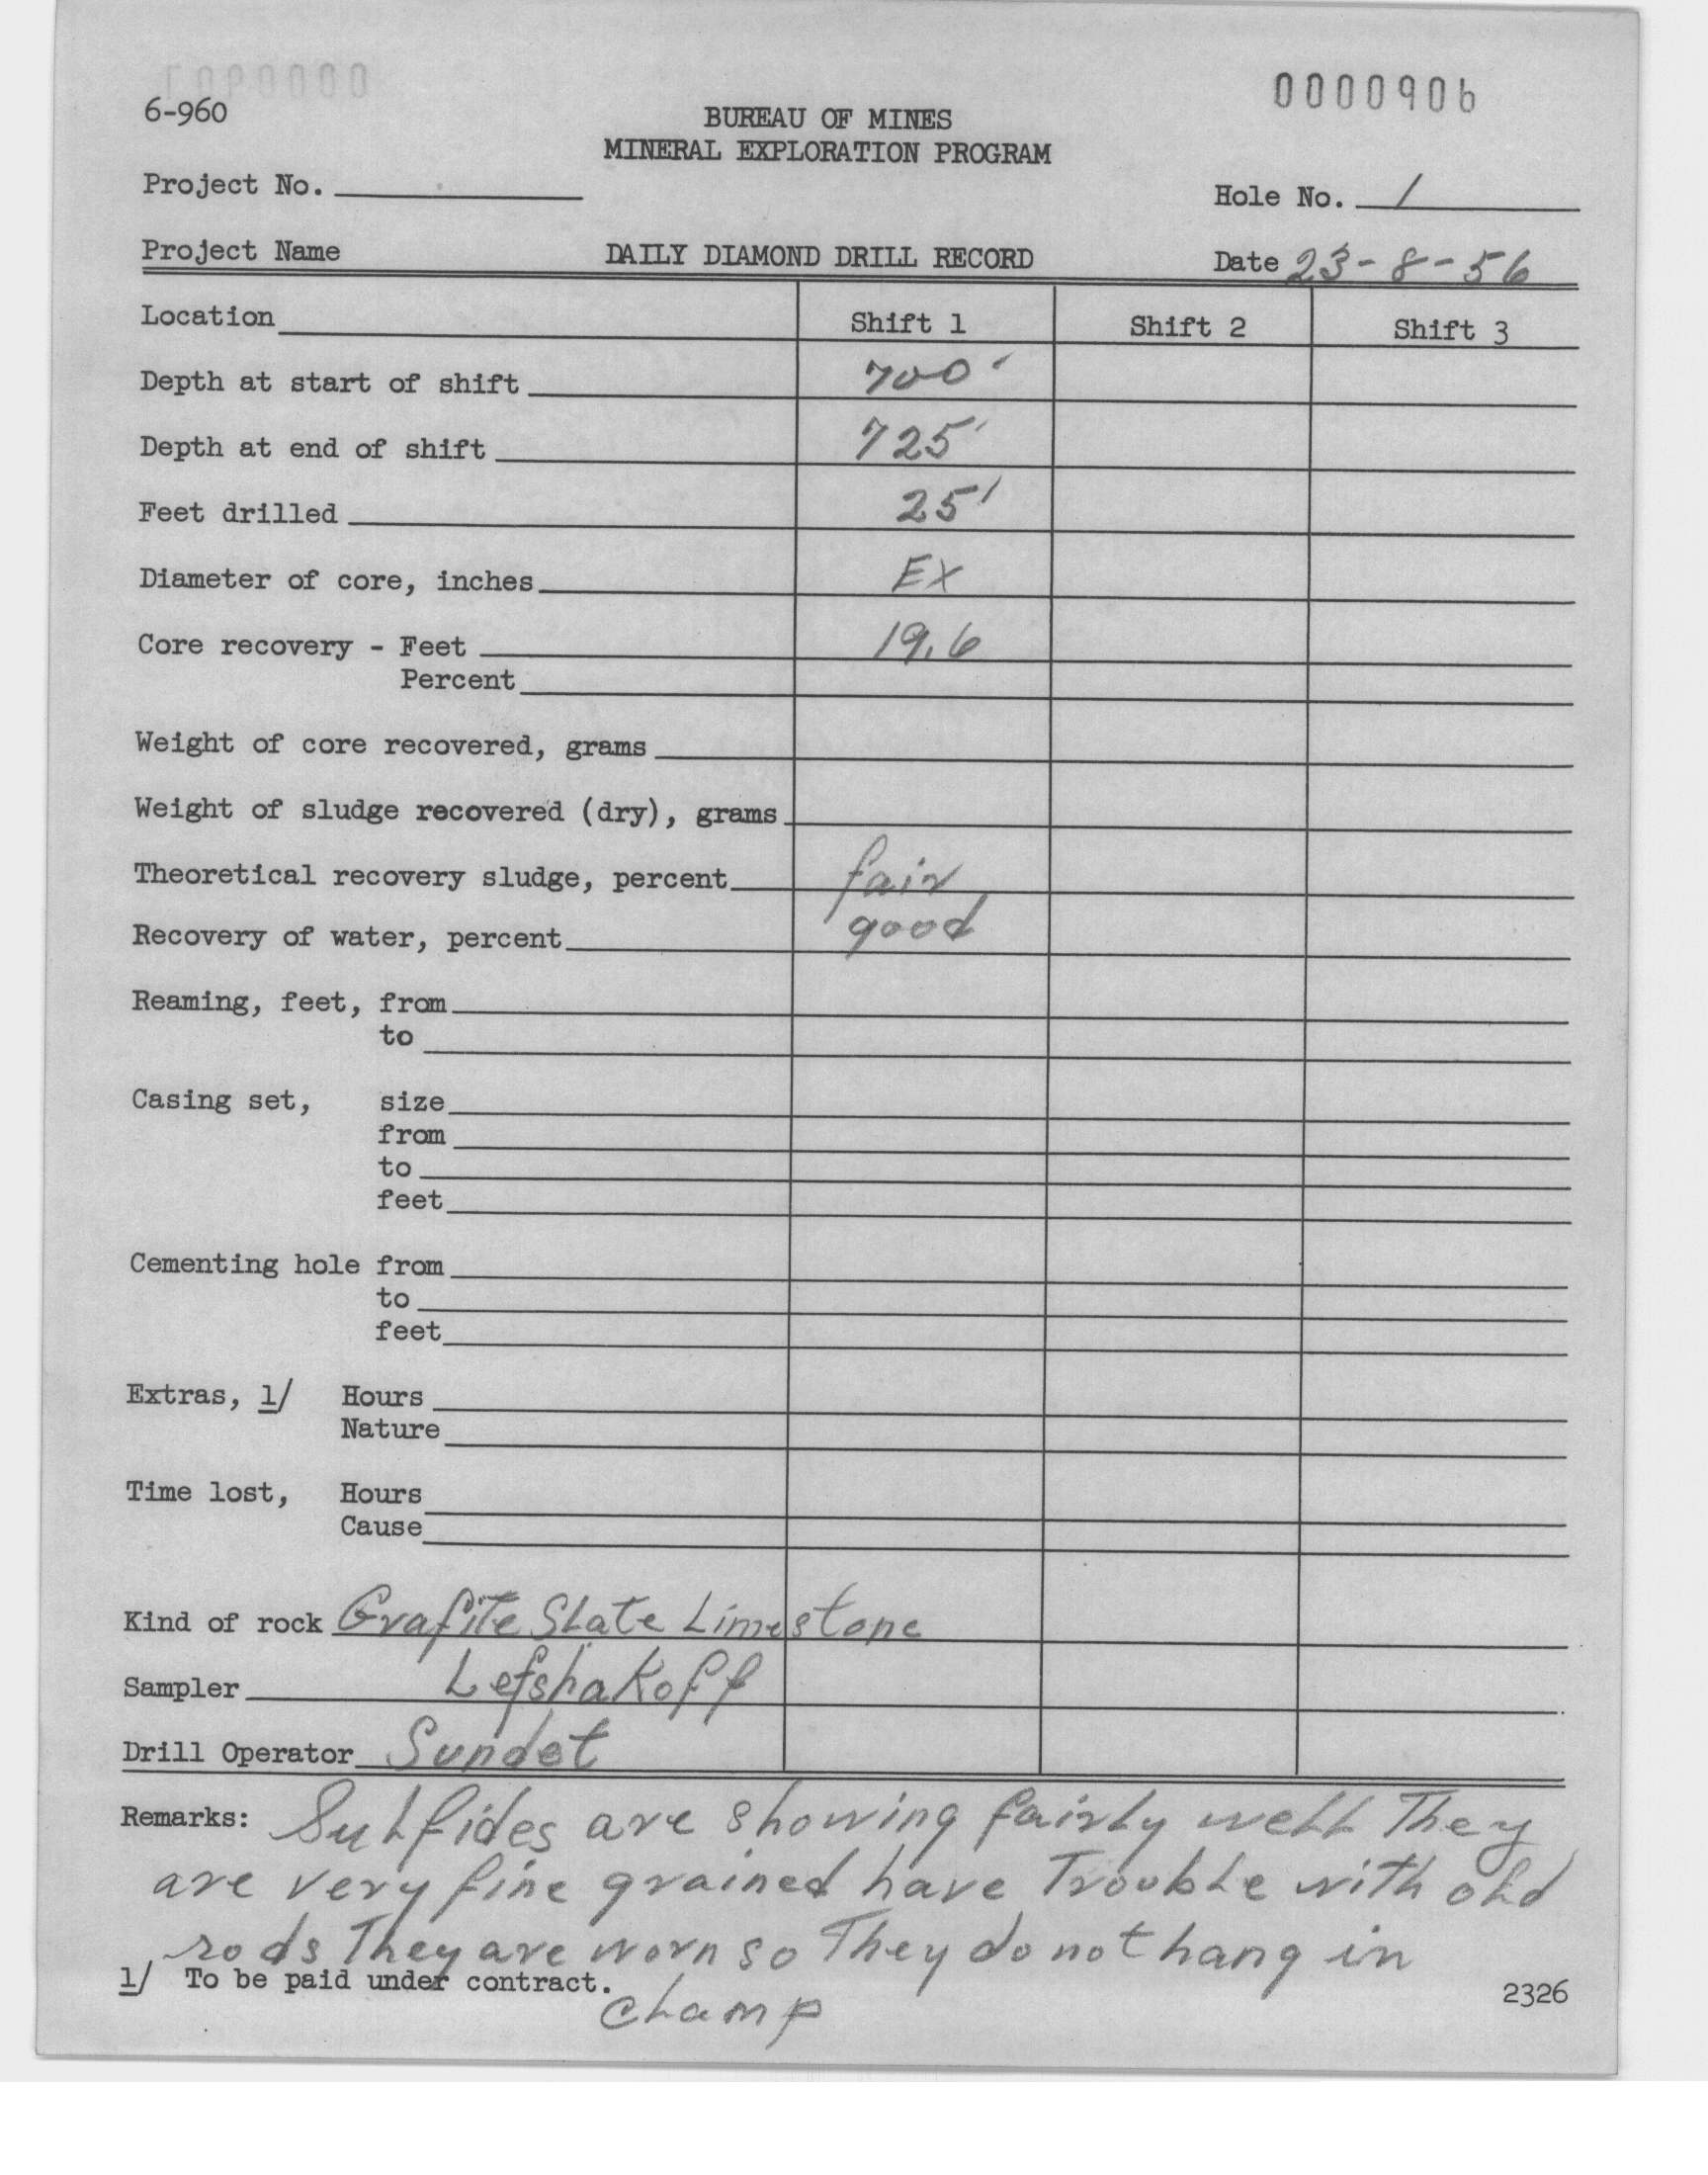 0000906
6-960
BUREAU OF MINES
MINERAL EXPLORATION PROGRAM
Project No.
Hole No. 1
Project Name DAILY DIAMOND DRILL RECORD Date 23-8-56
Location Shift 1 Shift 2 Shift 3
Depth at start of shift 700'
Depth at end of shift 725'
Feet drilled 25'
Diameter of core, inches EX
Core recovery - Feet 19.6
Percent
Weight of core recovered, grams
Weight of sludge recovered (dry), grams
Theoretical recovery sludge, percent fair
Recovery of water, percent good
Reaming, feet, from
to
Casing set, size
from
to
feet
Cementing hole from
to
feet
Extras, 1/ Hours
Nature
Time lost, Hours
Cause
Kind of rock Grafite Slate Limestone
Sampler Lefshakoff
Drill Operator Sundet
Remarks: Sulfides are showing fairly well They
are very fine grained have Trouble with old
rods They are worn so They do not hang in
1/ To be paid under contract.
clamp
2326